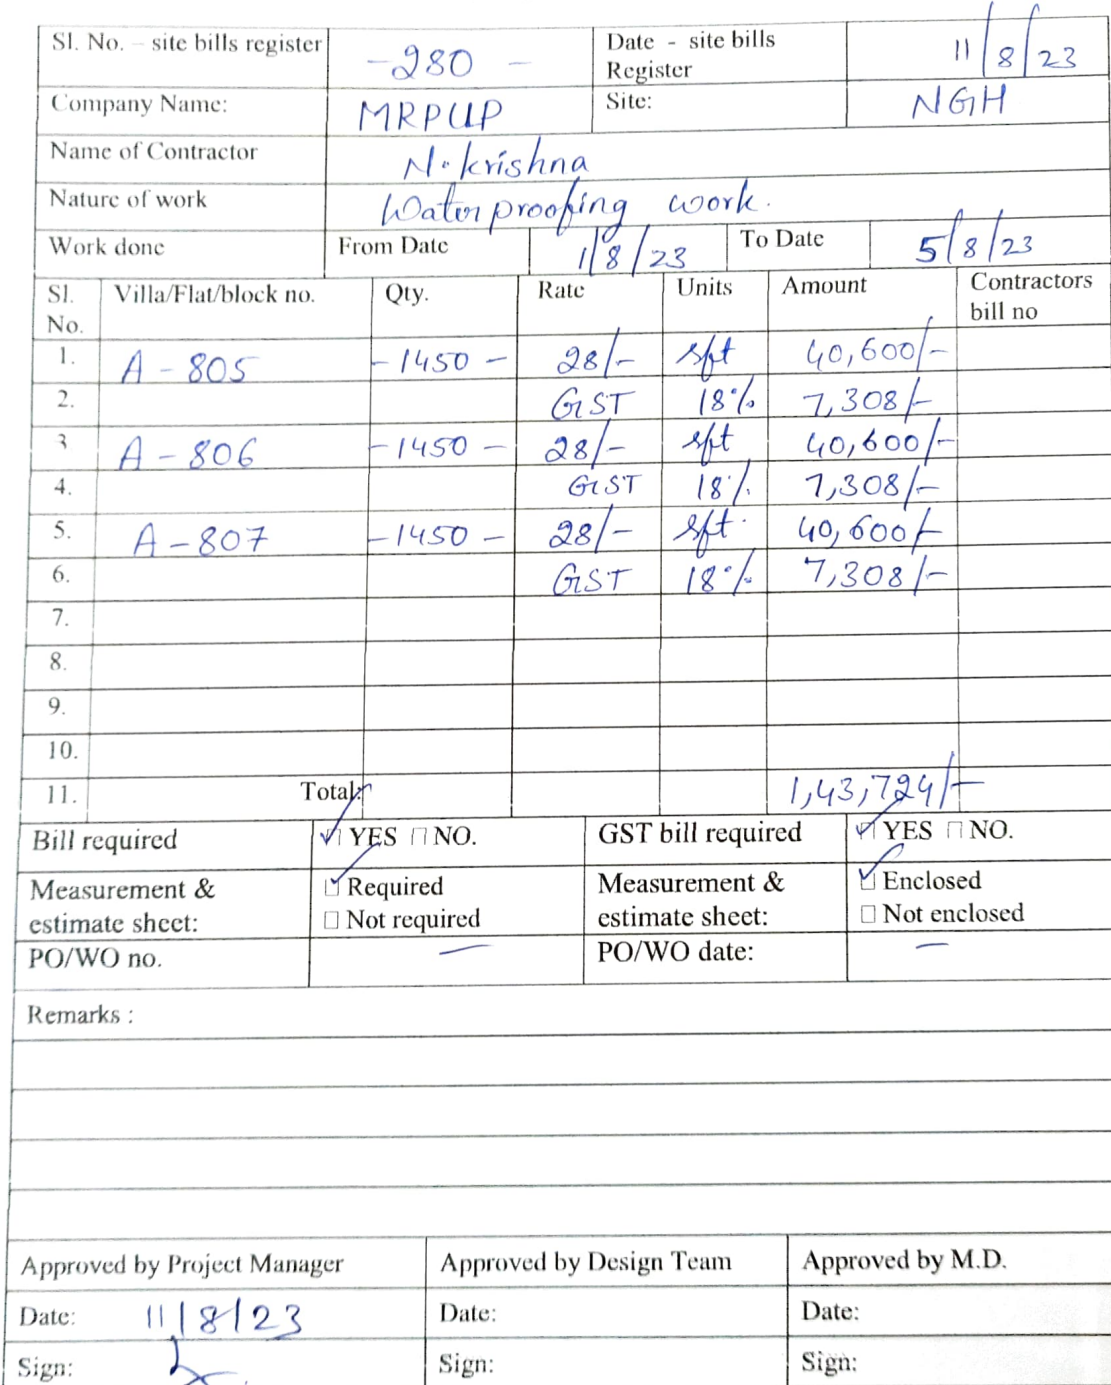 Sl. No. – site bills register -280 - Date - site bills Register 11/8/23
Company Name: MRPUP Site: NGH
Name of Contractor N. krishna
Nature of work Waterproofing work.
Work done From Date 1/8/23 To Date 5/8/23
Sl. No. Villa/Flat/block no. Qty. Rate Units Amount Contractors bill no
1. A - 805 -1450- 28/- sft 40,600/-
2. GST 18% 7,308/-
3 A - 806 -1450- 28/- sft 40,600/-
4. GST 18% 7,308/-
5. A - 807 -1450- 28/- sft. 40,600/-
6. GST 18% 7,308/-
7.
8.
9.
10.
11. Total: 1,43,724/-
Bill required ☑ YES ☐ NO. GST bill required ☑ YES ☐ NO.
Measurement & estimate sheet: ☑ Required Measurement & estimate sheet: ☑ Enclosed
☐ Not required ☐ Not enclosed
PO/WO no. — PO/WO date: —
Remarks :
Approved by Project Manager Approved by Design Team Approved by M.D.
Date: 11/8/23 Date: Date:
Sign: Sign: Sign: